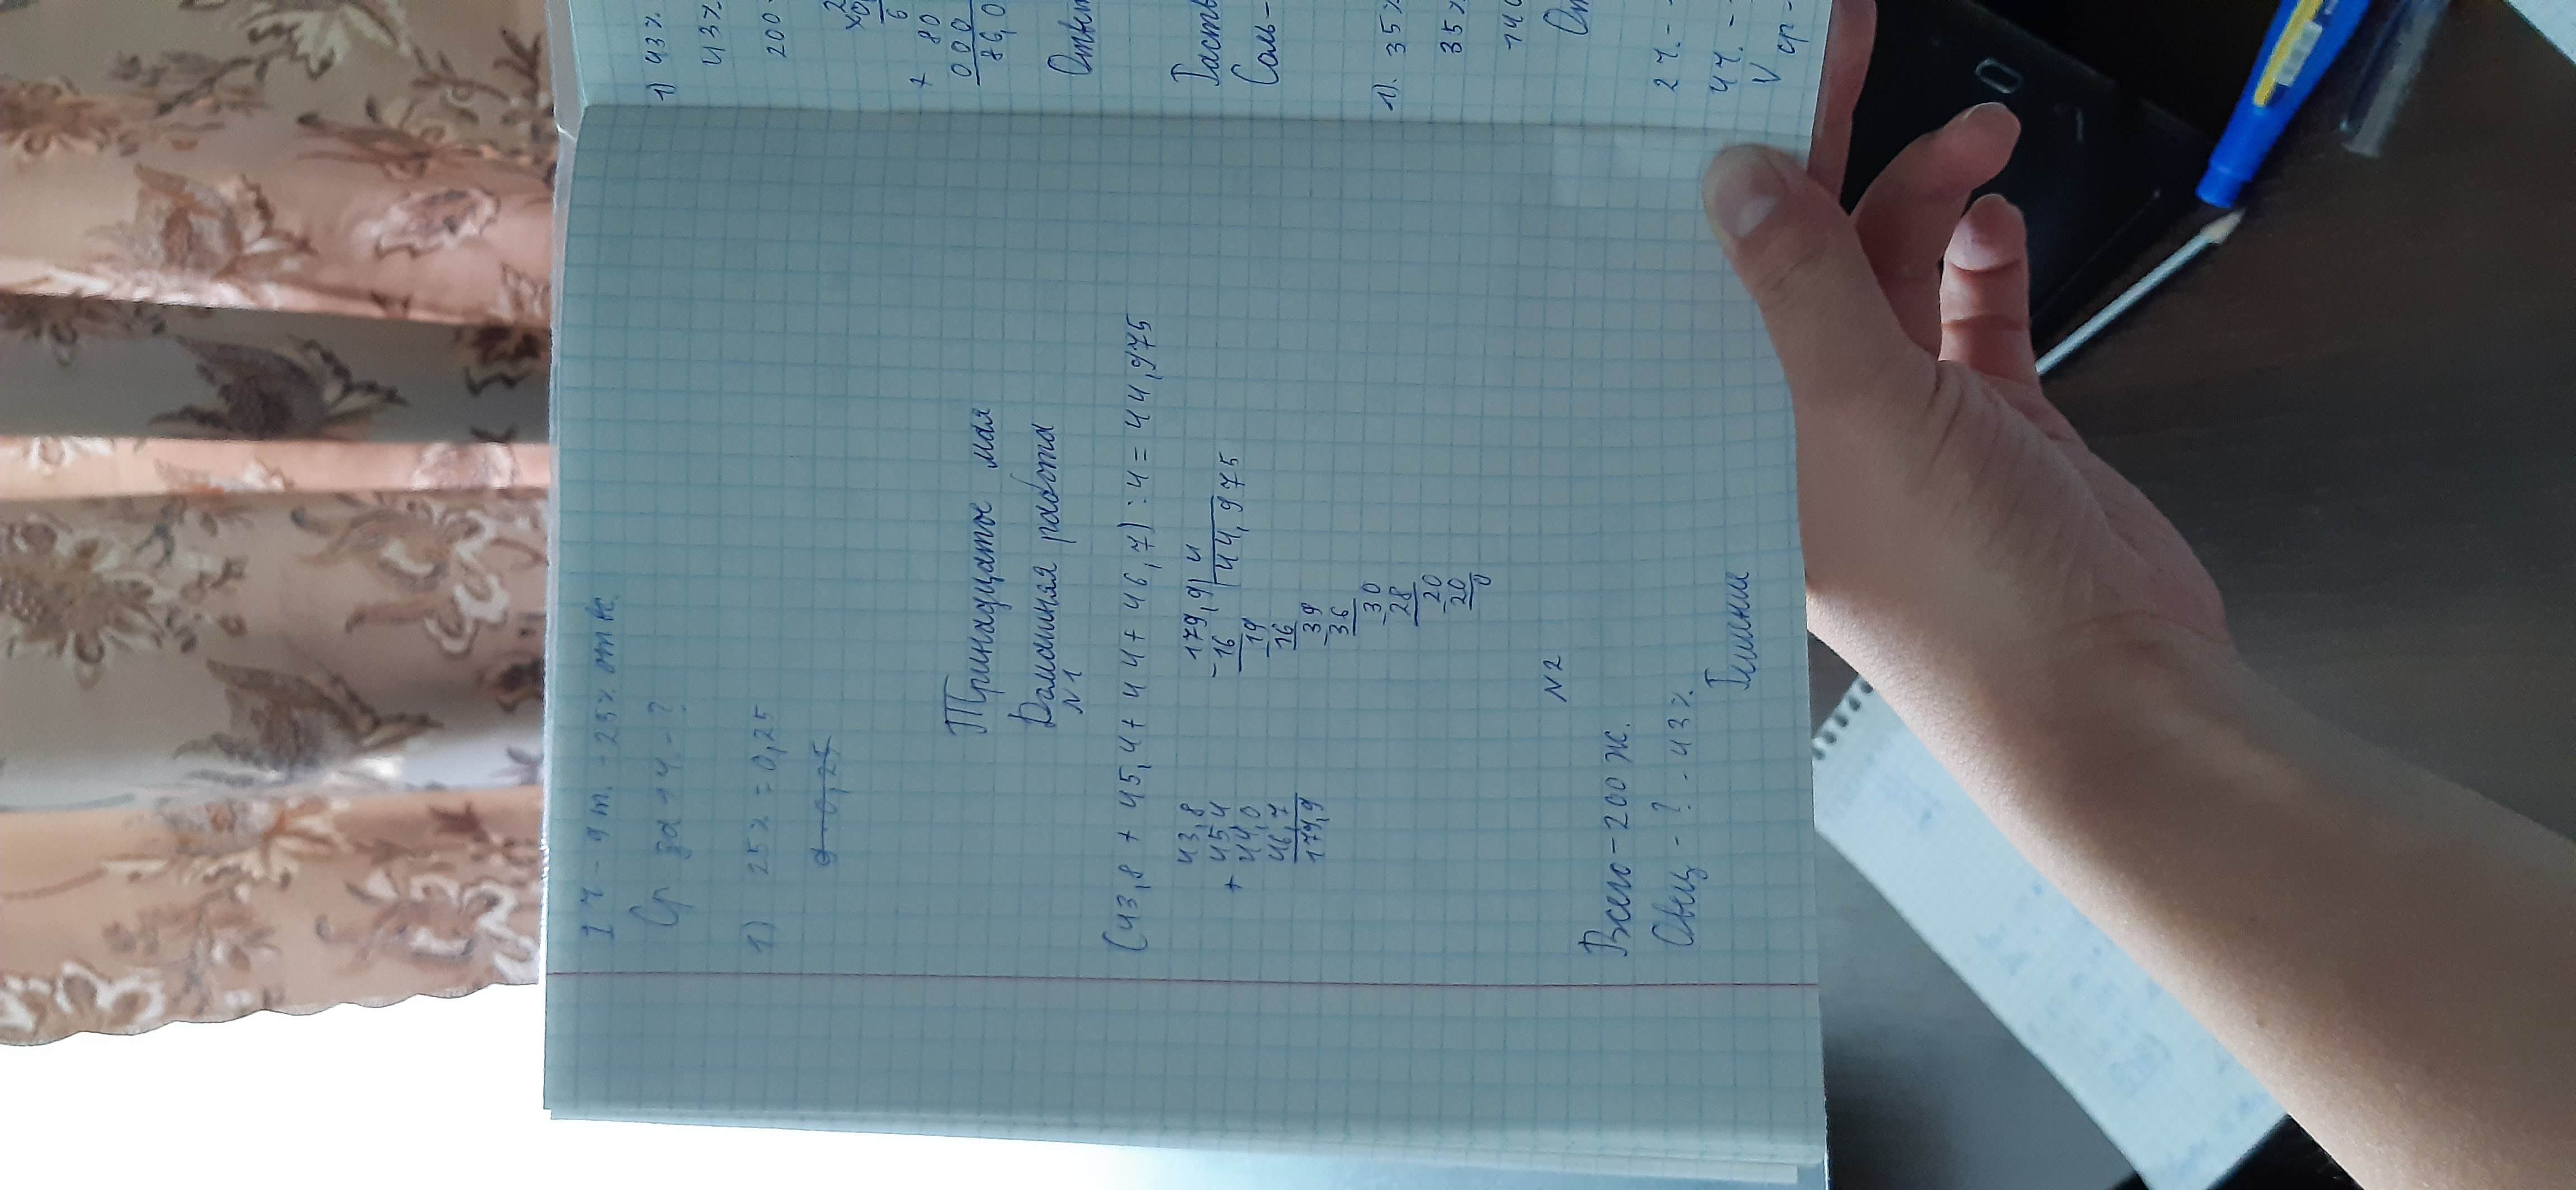 I ч - 9 т. - 25% от
Ср за 1 ч. - ?
1) 25% = 0,25
9 · 0,25
Тринадцатое мая
Домашняя работа
N1
(43,8 + 45,4 + 44 + 46,7) : 4 = 44,975
43,8
+ 45,4
44,0
46,7
179,9
179,9 4
-16 44,975
-19
16
-39
36
-30
28
-20
20
0
N2
Всего - 200 ж.
Овец - ? - 43%.
Решение
1) 43%
43%
200
80
000
86,0
Ответ
Раств
Соль -
1). 35%
35%
140
2 ч. -
4 ч. -
V ср -